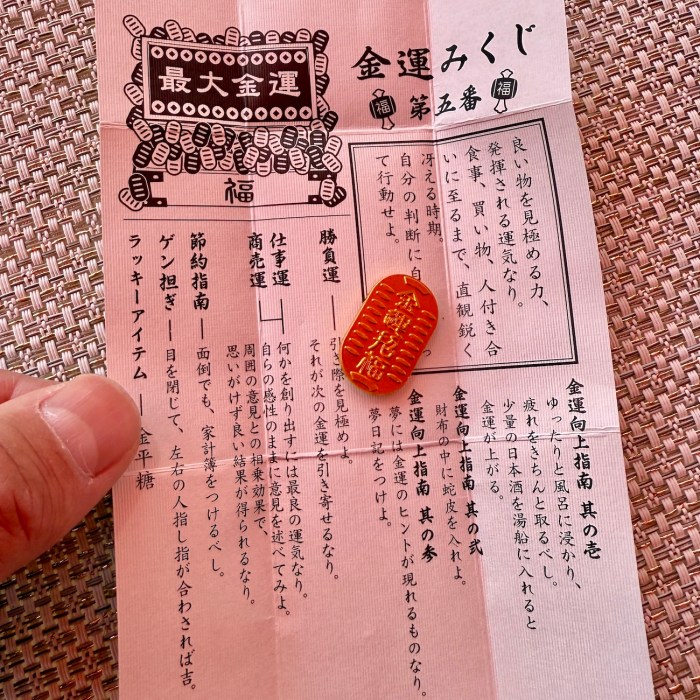 金運みくじ
福 第五番 福
最大金運
福
良い物を見極める力、
発揮される運気なり。
食事、買い物、人付き合
いに至るまで、直観鋭く
冴える時期。
自分の判断に自
っ
て行動せよ。
金運向上指南 其の壱
ゆったりと風呂に浸かり、
疲れをきちんと取るべし。
少量の日本酒を湯船に入れると
金運が上がる。
金運向上指南 其の弐
財布の中に蛇皮を入れよ。
金運向上指南 其の参
夢には金運のヒントが現れるものなり。
夢日記をつけよ。
勝負運 ― 引き際を見極めよ。
それが次の金運を引き寄せるなり。
仕事運
商売運
何かを創り出すには最良の運気なり。
自らの感性のままに意見を述べてみよ。
周囲の意見との相乗効果で、
思いがけず良い結果が得られるなり。
節約指南 ― 面倒でも、家計簿をつけるべし。
ゲン担ぎ ― 目を閉じて、左右の人指し指が合わされば吉。
ラッキーアイテム ― 金平糖
金運招福